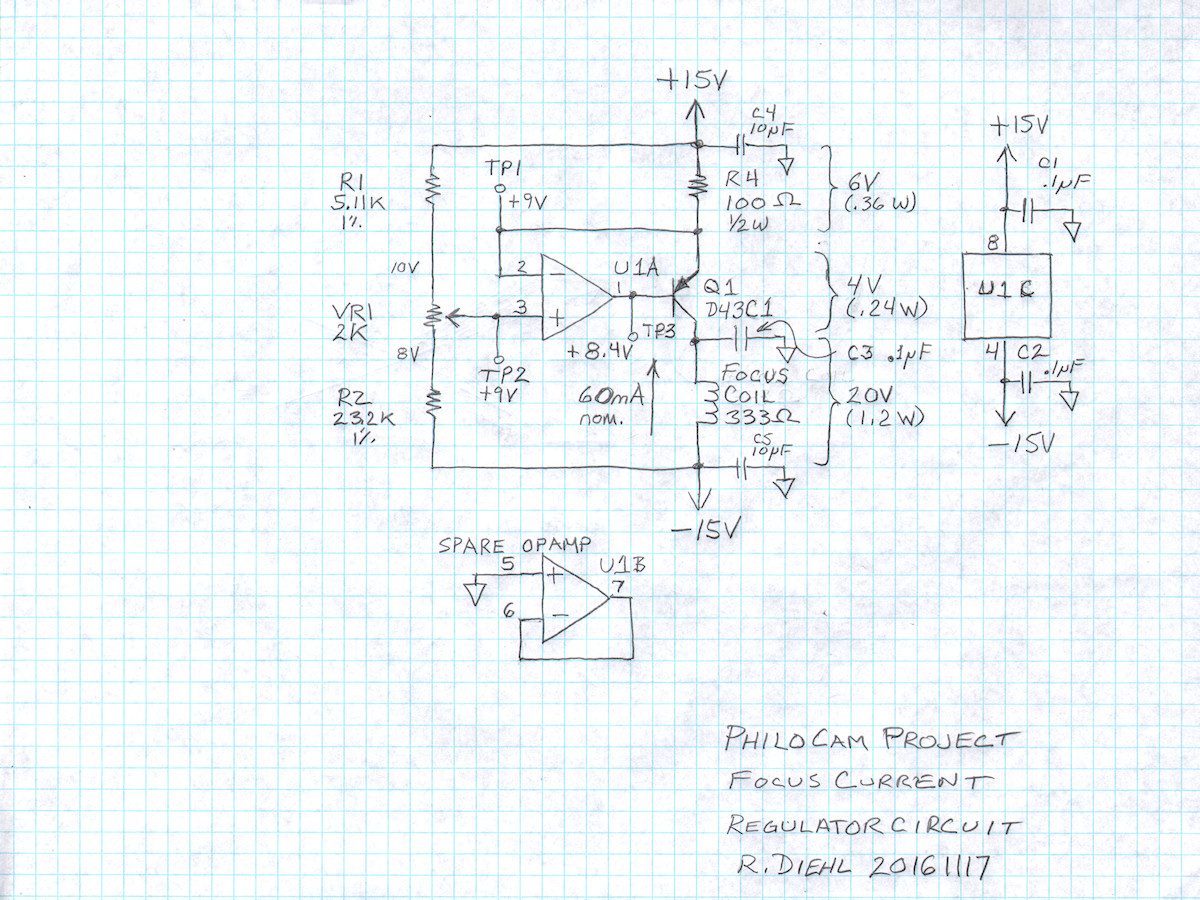 +15V
C4
10µF
TP1
+9V
R1
5.11K
1%
R4
100Ω
1/2W
6V
(.36W)
+15V
C1
.1µF
8
U1C
4
C2
.1µF
-15V
10V
2
-
U1A
1
Q1
D43C1
4V
(.24W)
VR1
2K
3
+
TP3
+8.4V
8V
TP2
+9V
C3 .1µF
60mA
nom.
FOCUS
COIL
333Ω
20V
(1.2W)
R2
23.2K
1%
C5
10µF
-15V
SPARE OPAMP
5
+
U1B
7
6
-
PHILOCAM PROJECT
FOCUS CURRENT
REGULATOR CIRCUIT
R.DIEHL 20161117